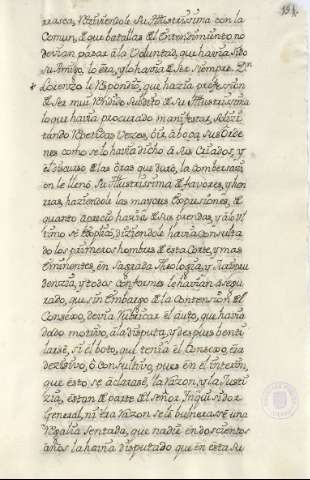 rrasca, diciendole su Illustrissima con la
Comun, que batallas del Entendimiento no
devian pasar à la Voluntad, que havia sido
su Amigo, lo era, y lo havia de ser siempre. Dn
Lorenzo le respondiò, que hacia profession
de ser mui rendido subdito de su Illustrissima
lo que havia procurado manifestar, solici
tando repetidas vezes, oir à boca sus Orde
nes como se lo havia dicho à sus Criados, y
el discurso de las oras que durò, la combersazi
on le llenò su Illustrissima de favores, y hon
rras, haziendole las mayores Expresiones, de
quanto aprecio hazia de sus prendas, y à lo ul
timo se explicò, diziendole havia consulta
do los primeros hombres de esta Corte, y mas
eminentes, en Sagrada Theologia, y Jurispru
denzia, y todos conformes le havian asegu
rado, que sin embargo de la Contension del
Consexo, devia rubricar el auto, que havia
dado motivo, à la disputa, y despues benti
larse, si el boto, que tenia el Consexo, era
dezisivo, ò consultivo, pues en el interin,
que esto se aclarase, la razon, y la Justi
zia, estan de parte del señor Inquisidor
General, ni era razon se le bulnerase una
regalia sentada, que nadie en doscientos
años la havia disputado que en esta su